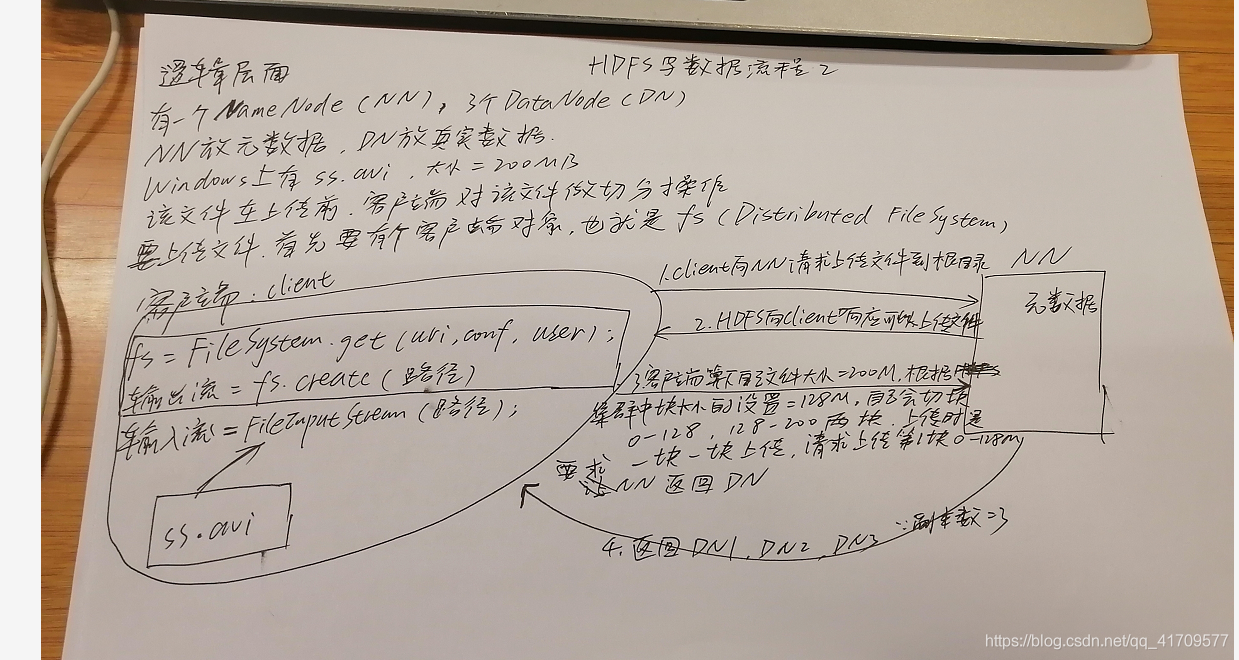 逻辑层面
HDFS写数据流程2
有一个NameNode(NN),3个DataNode(DN)
NN放元数据,DN放真实数据.
Windows上有ss.avi,大小=200MB
该文件在上传前,客户端对该文件做切分操作
要上传文件,首先要有个客户端对象,也就是fs(Distributed FileSystem)
客户端:client
fs=FileSystem.get(uri,conf,user);
输出流=fs.create(路径)
输入流=FileInputStream(路径);
ss.avi
1.client向NN请求上传文件到根目录
NN
元数据
2.HDFS向client响应可以上传文件
3.客户端算下自己文件大小=200M,根据
集群中块大小的设置=128M,自己会切块
0-128,128-200两块.上传时是
一块一块上传,请求上传第1块0-128M,
要求NN返回DN
∵副本数=3
4.返回DN1,DN2,DN3
https://blog.csdn.net/qq_41709577